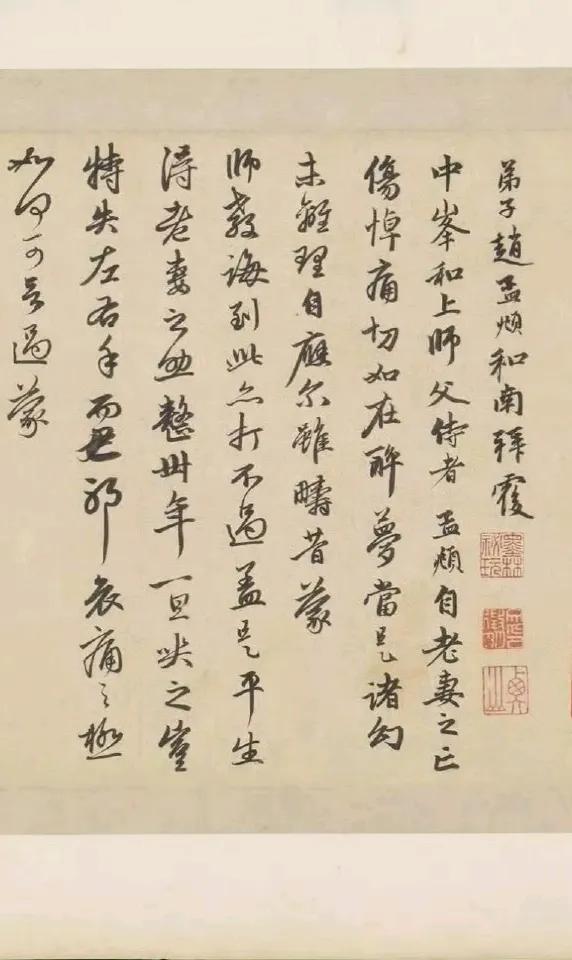 弟子趙孟頫和南拜覆
中峯和上師父侍者孟頫自老妻之亡
傷悼痛切如在醉夢當是諸幻
未離理自應尔雖疇昔蒙
師教誨到此亦打不過蓋是平生
得老妻之助整卅年一旦哭之豈
特失左右手而已耶哀痛之極
如何可言過蒙
墨林祕玩